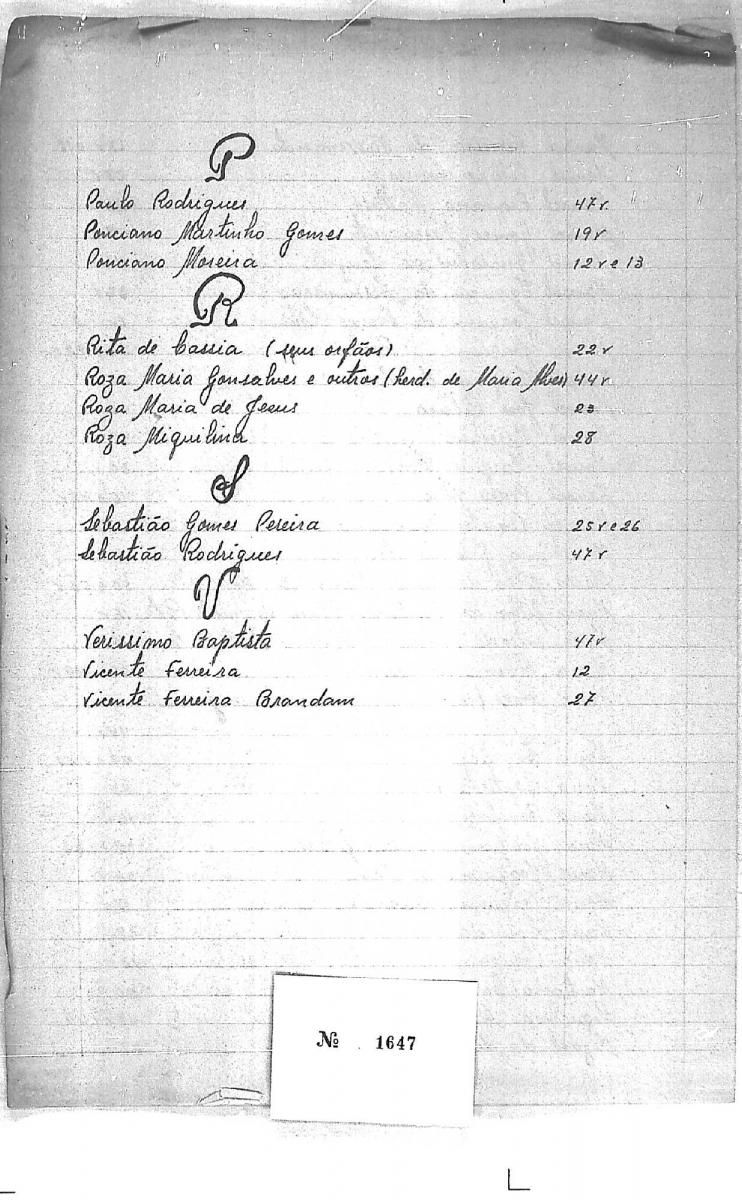 P
Paulo Rodrigues 47v.
Ponciano Martinho Gomes 19v
Ponciano Moreira 12v e 13
R
Rita de Cassia (seus orfãos) 22v
Roza Maria Gonsalves e outros (herd. de Maria Alves) 44v
Roza Maria de Jesus 23
Roza Miquilina 28
S
Sebastião Gomes Pereira 25v e 26
Sebastião Rodrigues 47v
V
Verissimo Baptista 47v
Vicente Ferreira 12
Vicente Ferreira Brandam 27
Nº 1647